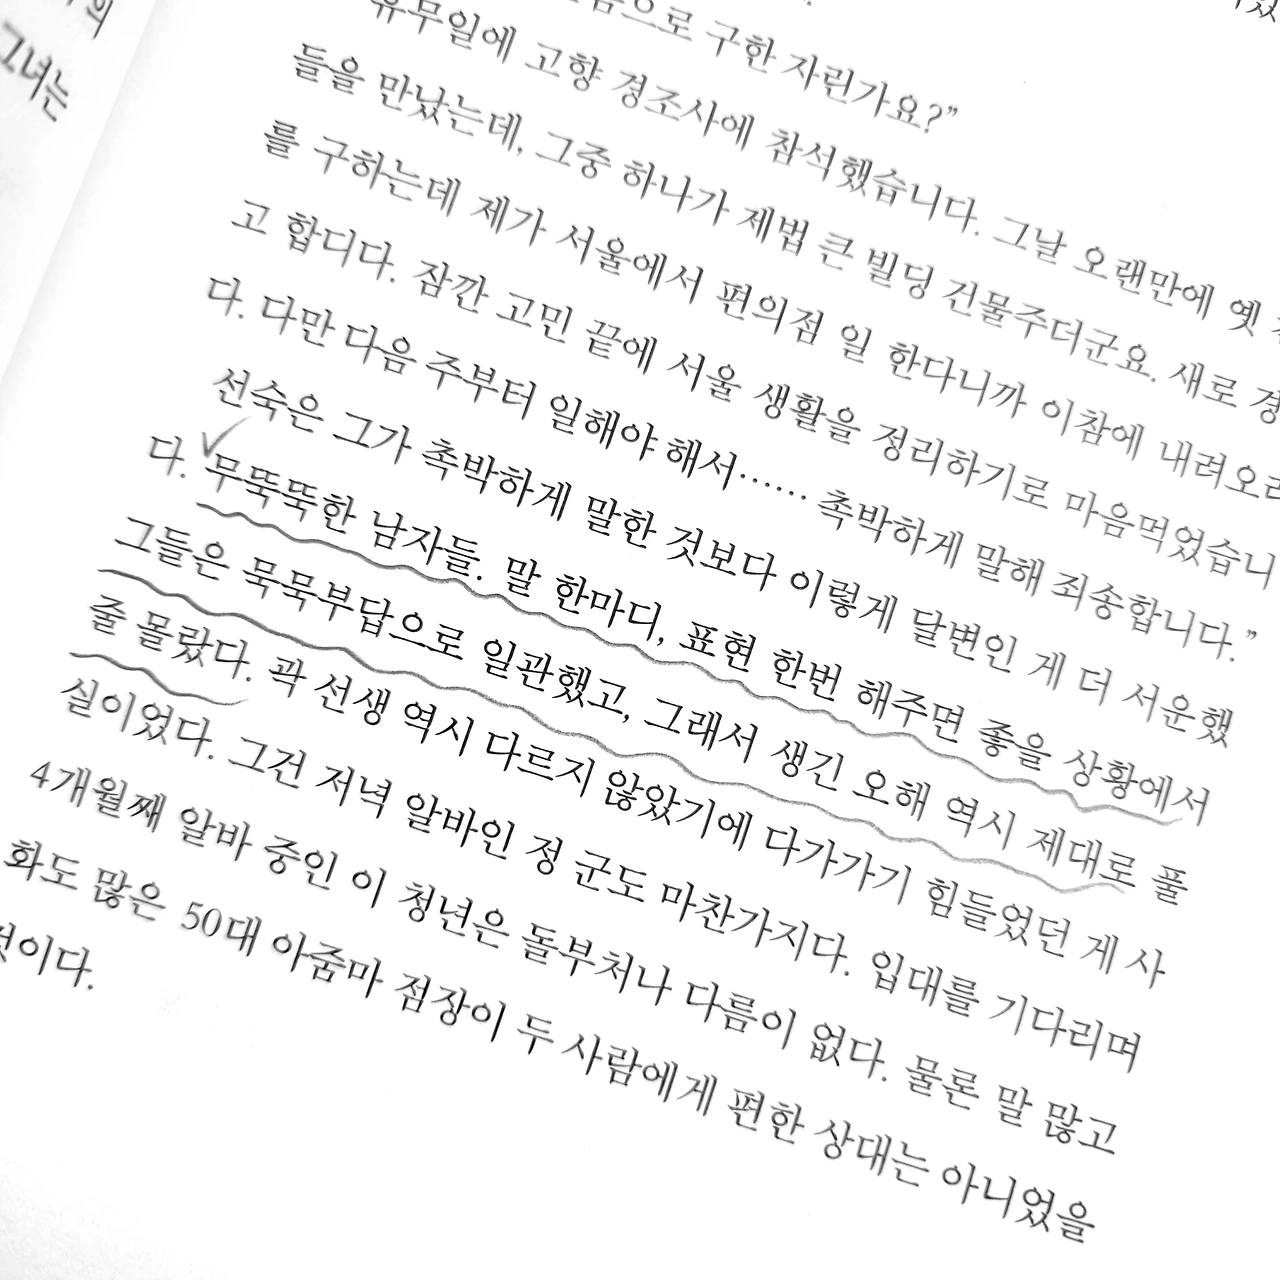 의
그녀는
으로 구한 자린가요?”
유무일에 고향 경조사에 참석했습니다. 그날 오랜만에 옛
들을 만났는데, 그중 하나가 제법 큰 빌딩 건물주더군요. 새로 경
를 구하는데 제가 서울에서 편의점 일 한다니까 이참에 내려오라
고 합디다. 잠깐 고민 끝에 서울 생활을 정리하기로 마음먹었습니
다. 다만 다음 주부터 일해야 해서…… 촉박하게 말해 죄송합니다.”
선숙은 그가 촉박하게 말한 것보다 이렇게 달변인 게 더 서운했
다. 무뚝뚝한 남자들. 말 한마디, 표현 한번 해주면 좋을 상황에서
그들은 묵묵부답으로 일관했고, 그래서 생긴 오해 역시 제대로 풀
줄 몰랐다. 곽 선생 역시 다르지 않았기에 다가가기 힘들었던 게 사
실이었다. 그건 저녁 알바인 정 군도 마찬가지다. 입대를 기다리며
4개월째 알바 중인 이 청년은 돌부처나 다름이 없다. 물론 말 많고
화도 많은 50대 아줌마 점장이 두 사람에게 편한 상대는 아니었을
것이다.